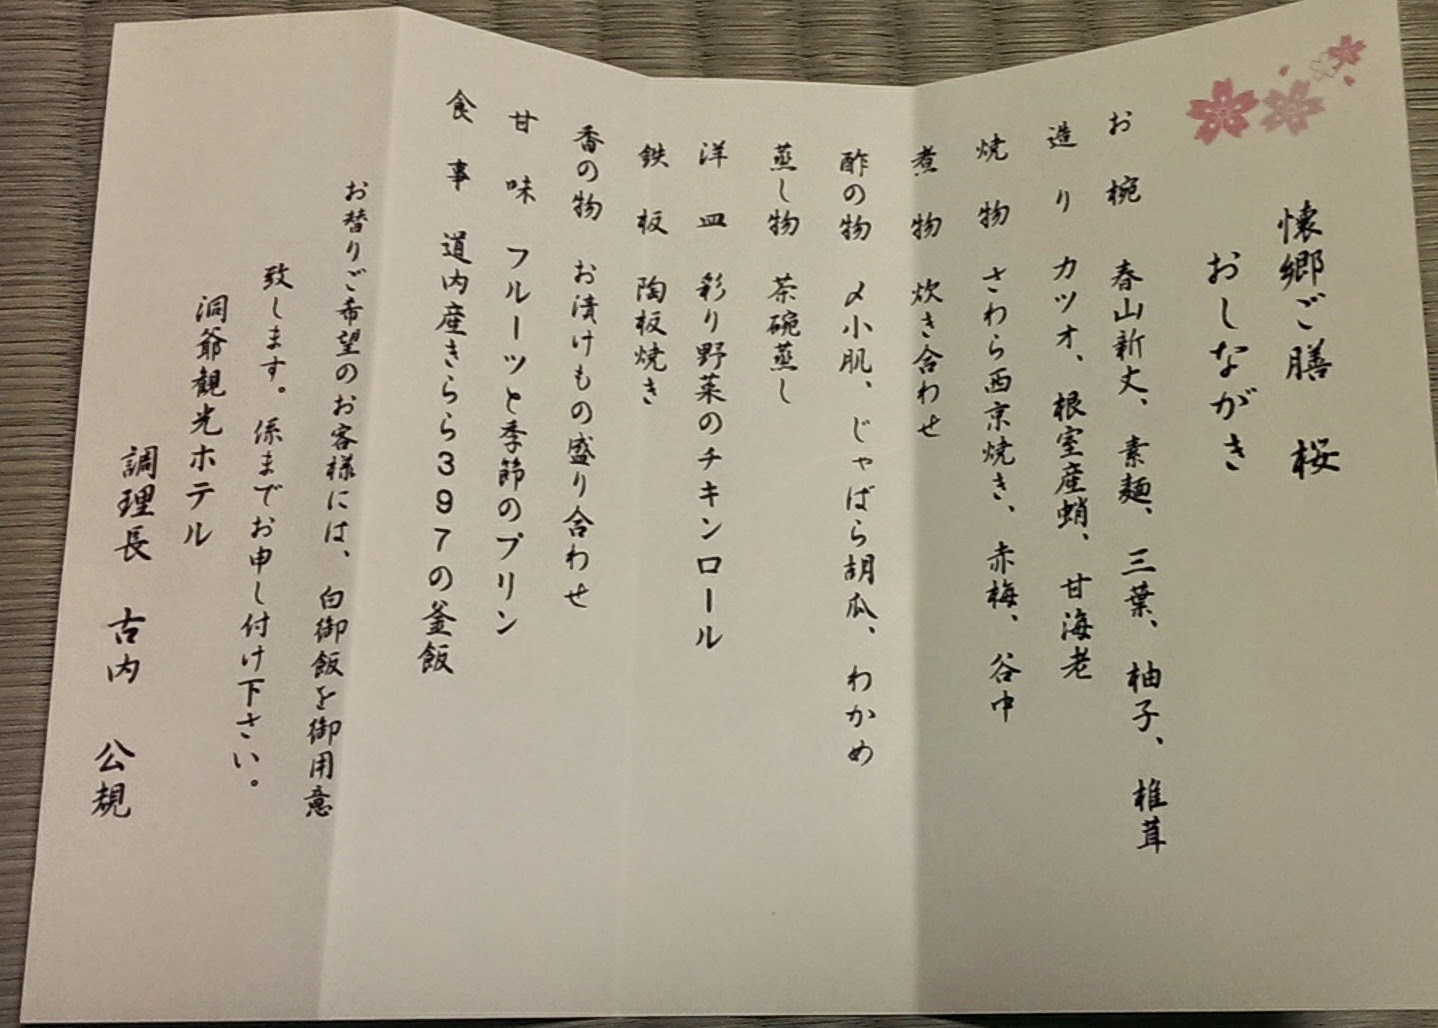 懐郷ご膳 桜
おしながき
お椀 春山新丈、素麺、三葉、柚子、椎茸
造り カツオ、根室産蛸、甘海老
焼物 さわら西京焼き、赤梅、谷中
煮物 炊き合わせ
酢の物 〆小肌、じゃばら胡瓜、わかめ
蒸し物 茶碗蒸し
洋皿 彩り野菜のチキンロール
鉄板 陶板焼き
香の物 お漬けもの盛り合わせ
甘味 フルーツと季節のプリン
食事 道内産きらら397の釜飯
お替りご希望のお客様には、白御飯を御用意
致します。係までお申し付け下さい。
洞爺観光ホテル
調理長 古内 公規